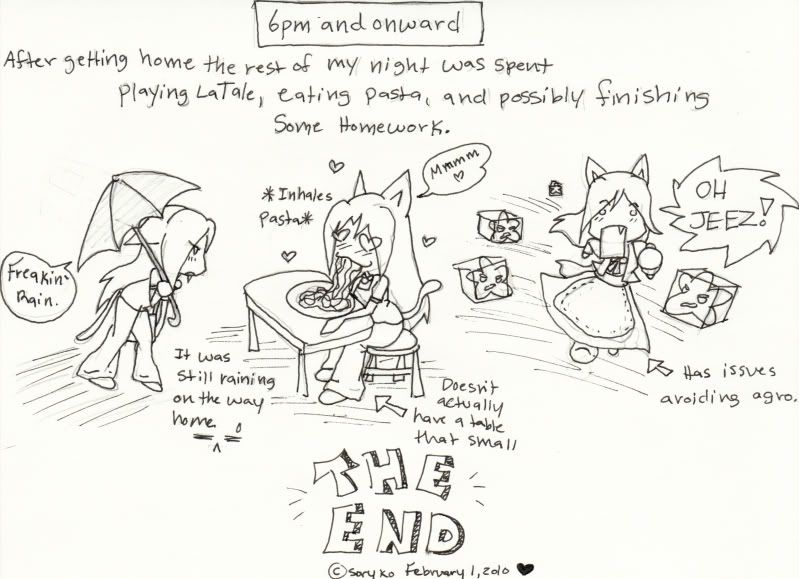 6pm and onward
After getting home the rest of my night was spent
Playing LaTale, eating pasta, and possibly finishing
Some Homework.
Freakin'
Rain.
It was
still raining
on the way
home.
*Inhales
Pasta*
Mmmm
Doesn't
actually
have a table
that small
OH
JEEZ!
Has issues
avoiding agro.
THE
END
© soryko February 1, 2010